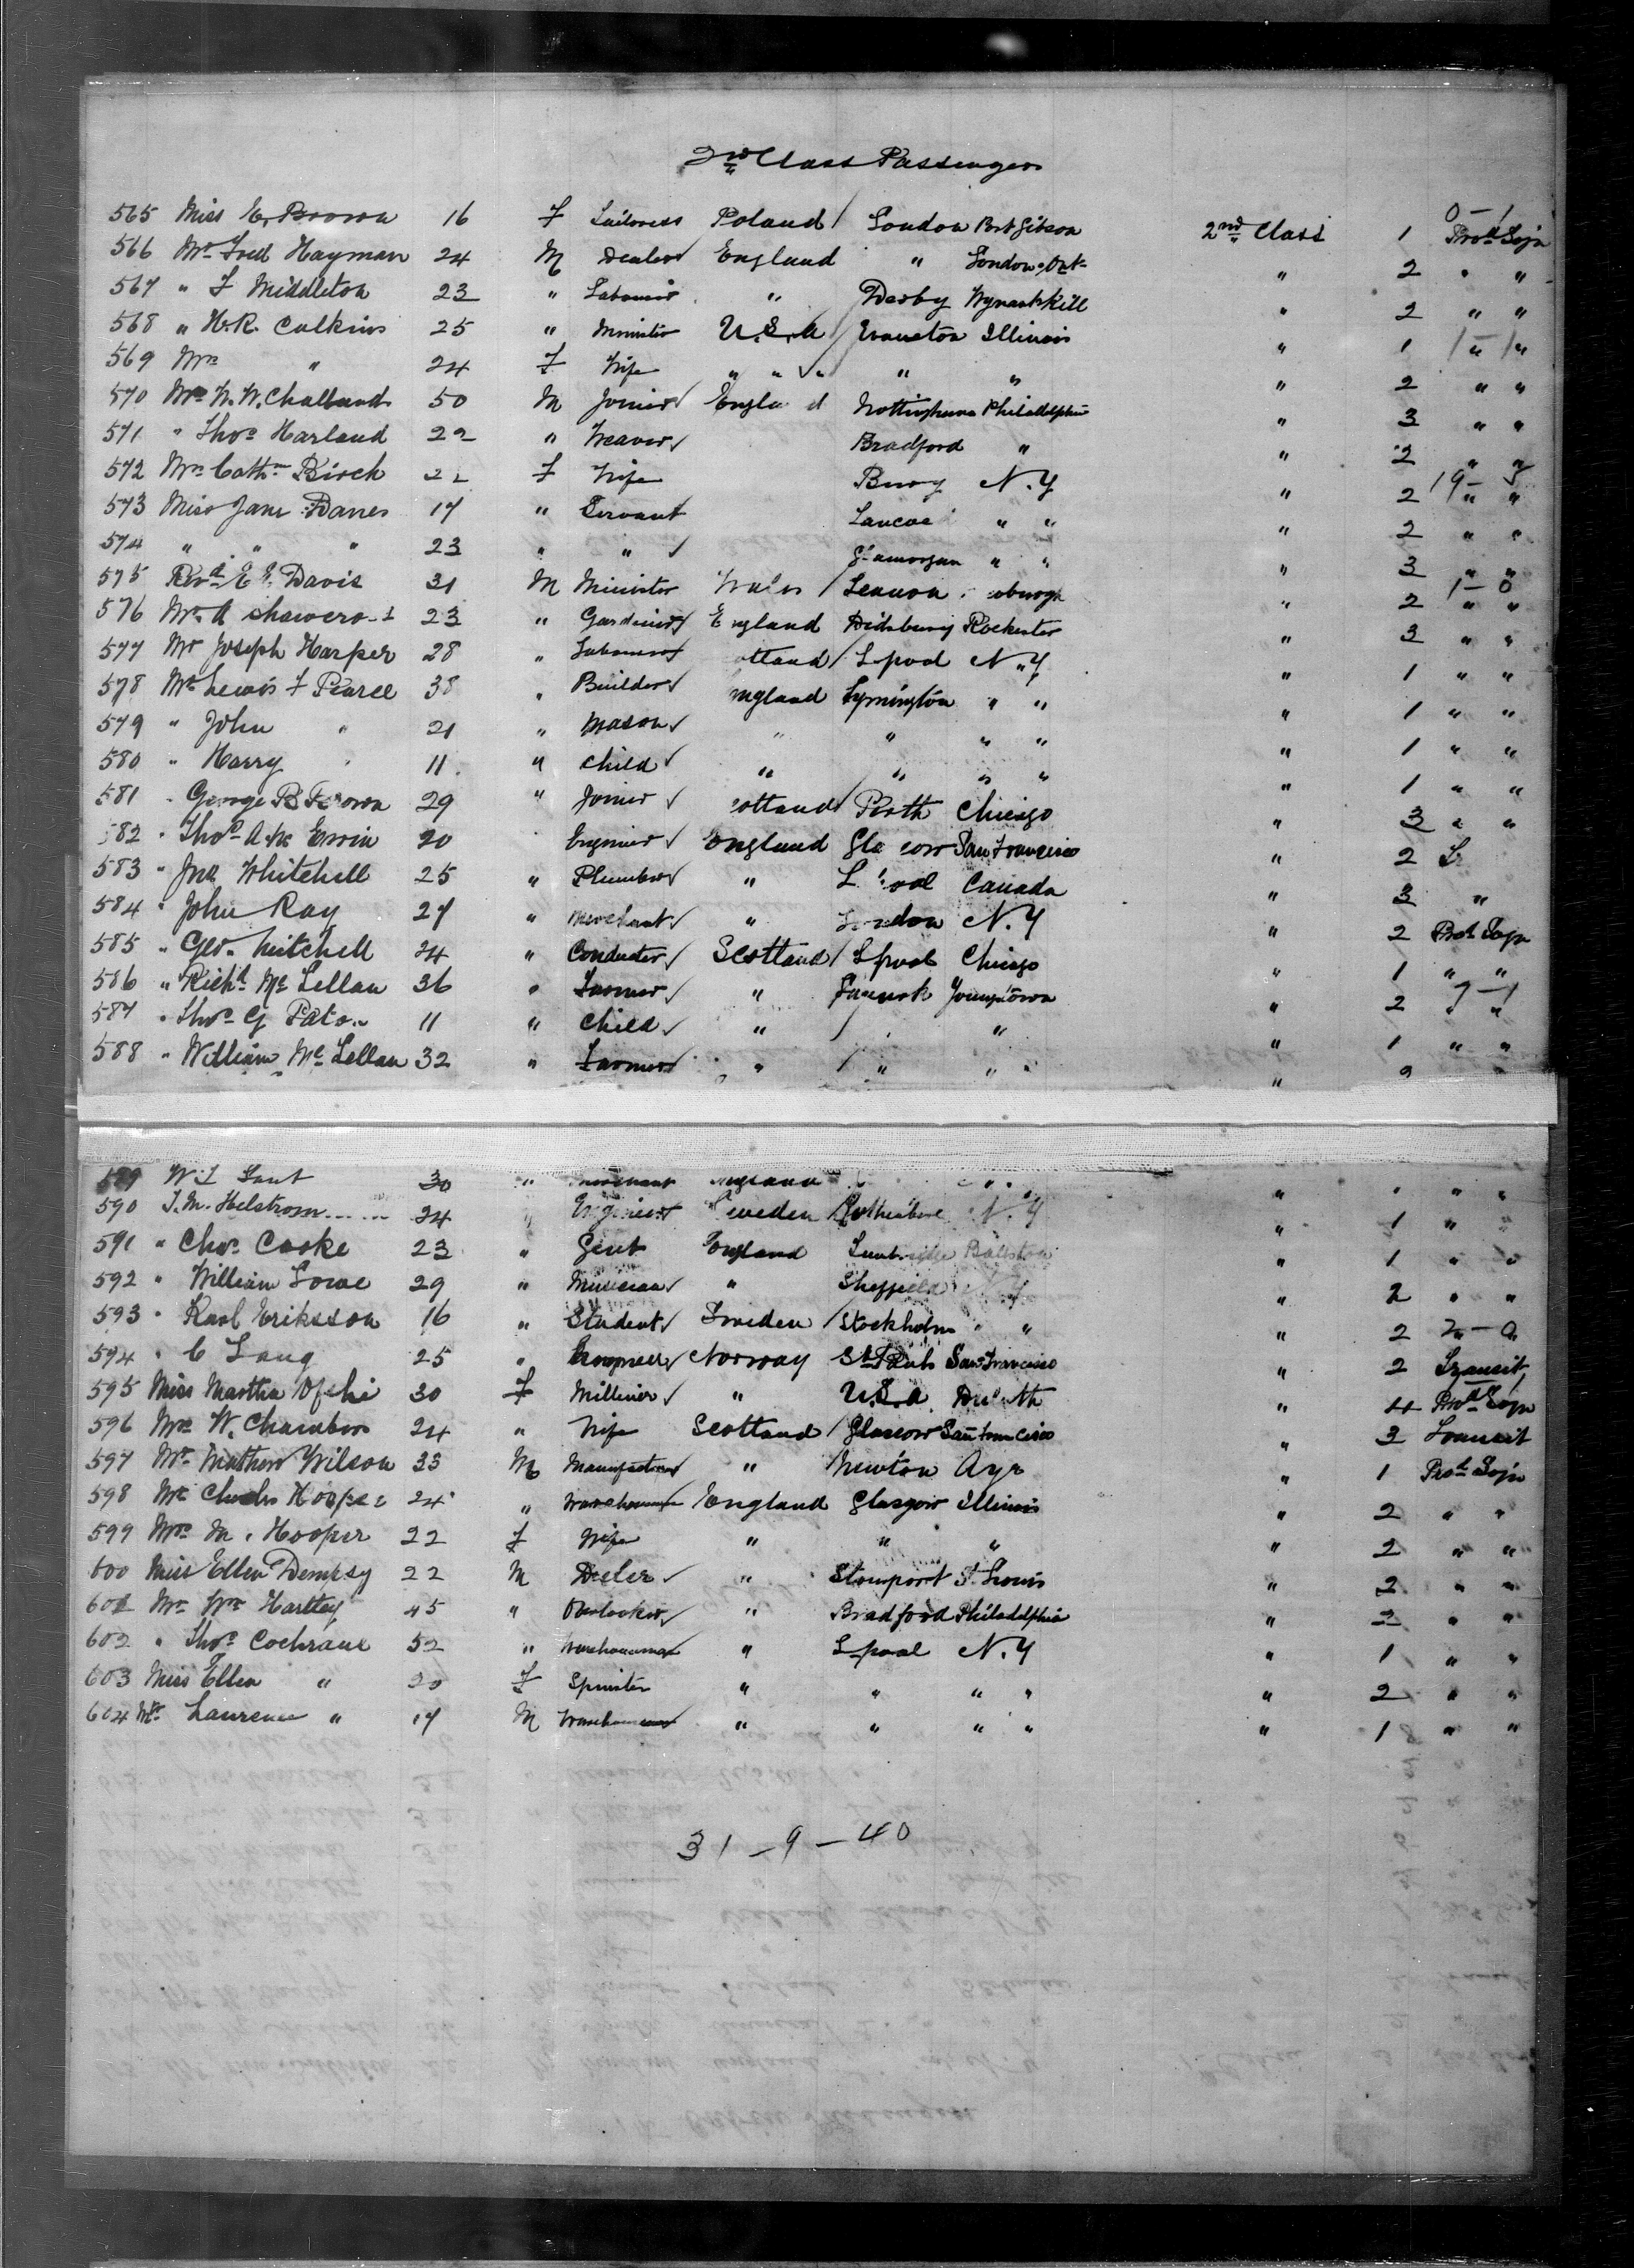 2nd Class Passengers
0 – 1
565 Miss E. Brown 16 F Tailoress Poland / London Port Gibson 2nd Class 1 Protd Sojn
566 Mr Fred Hayman 24 M Dealer England " London, Ont " 2 " "
567 " F Middleton 23 " Labourer " Derby Wynantskill " 2 " "
568 " H.R. Calkins 25 " Minister U.S.A / Evanston Illinois " 1 " "
569 Mrs " 24 F Wife " " " " " " 2 " "
570 Mr W. W. Challand 50 M Joiner England Nottingham Philadelphia " 3 " "
571 " Thos Harland 22 " Weaver Bradford " " 2 " "
572 Mrs Cathn Birch 22 F Wife Bury N.Y " 2 " "
573 Miss Jane Danes 17 " Servant " " " 2 " "
574 " " " 23 " " Glamorgan " " " 3 " "
1 – 0
575 Revd E S. Davis 31 M Minister Wales / " 2 " "
576 Mr A 23 " Gardiner England Didsbury Rochester " 3 " "
577 Mr Joseph Harper 28 " Labourer / Lpool N.Y " 1 " "
578 Mr Lewis F Pearce 38 " Builder England Lymington " " " 1 " "
579 " John " 21 " Mason " " " " " 1 " "
580 " Harry " 11 " Child " " " " " 1 " "
581 " George B Brown 29 " Joiner Scotland / Perth Chicago " 3 " "
582 " Thos Erwin 20 Engineer England Glasgow San Francisco " 2 Tr
583 " Jno Whitehill 25 " Plumber " L'pool Canada " 3 "
584 " John Ray 27 " Merchant " London N.Y " 2 Protd Sojn
585 " Geo. Mitchell 24 " Conductor Scotland / Lpool Chicago " 1 " "
586 " Richd Mc Lellan 36 " Farmer " Youngstown " 2 " "
587 " Thos G Paton 11 " Child " / " " 1 " "
588 " William Mc Lellan 32 " Farmer " / " " " "
589 30 " Merchant England " " " "
590 T.M. Helstrom 24 " Engineer Sweden / N.Y " 1 " "
591 " Chas. Cooke 23 " Gent England Ballston " 1 " "
592 " William Lowe 29 " Musician " Sheffield N.Y " 2 " "
593 " Karl Eriksson 16 " Student Sweden / Stockholm " " " 2 " "
594 " C Lang 25 " Norway St Paul San Francisco " 2 Transit
595 Miss Martha 30 F Milliner " U.S.A. Duluth " 4 Protd Sojn
596 Mrs W. Chambers 24 " Wife Scotland / Glasgow San Francisco " 3 Transit
597 Mr Matthew Wilson 33 M Manufacturer " / Newton Ayr " 1 Protd Sojn
598 Mr Charles Hooper 24 " Warehouseman England Glasgow Illinois " 2 " "
599 Mrs M. Hooper 22 F Wife " " " " 2 " "
600 Miss Ellen Dempsy 22 M Dieler " Stourport St Louis " 2 " "
601 Mr Wm Hartley 45 " Overlooker " Bradford Philadelphia " 2 " "
602 " Thos Cochrane 52 " Warehouseman " Lpool N.Y " 1 " "
603 Miss Ellen " 20 F Spinster " " " " " 2 " "
604 Mr Laurence " 17 M Warehouseman " " " " " 1 " "
31 – 9 – 40